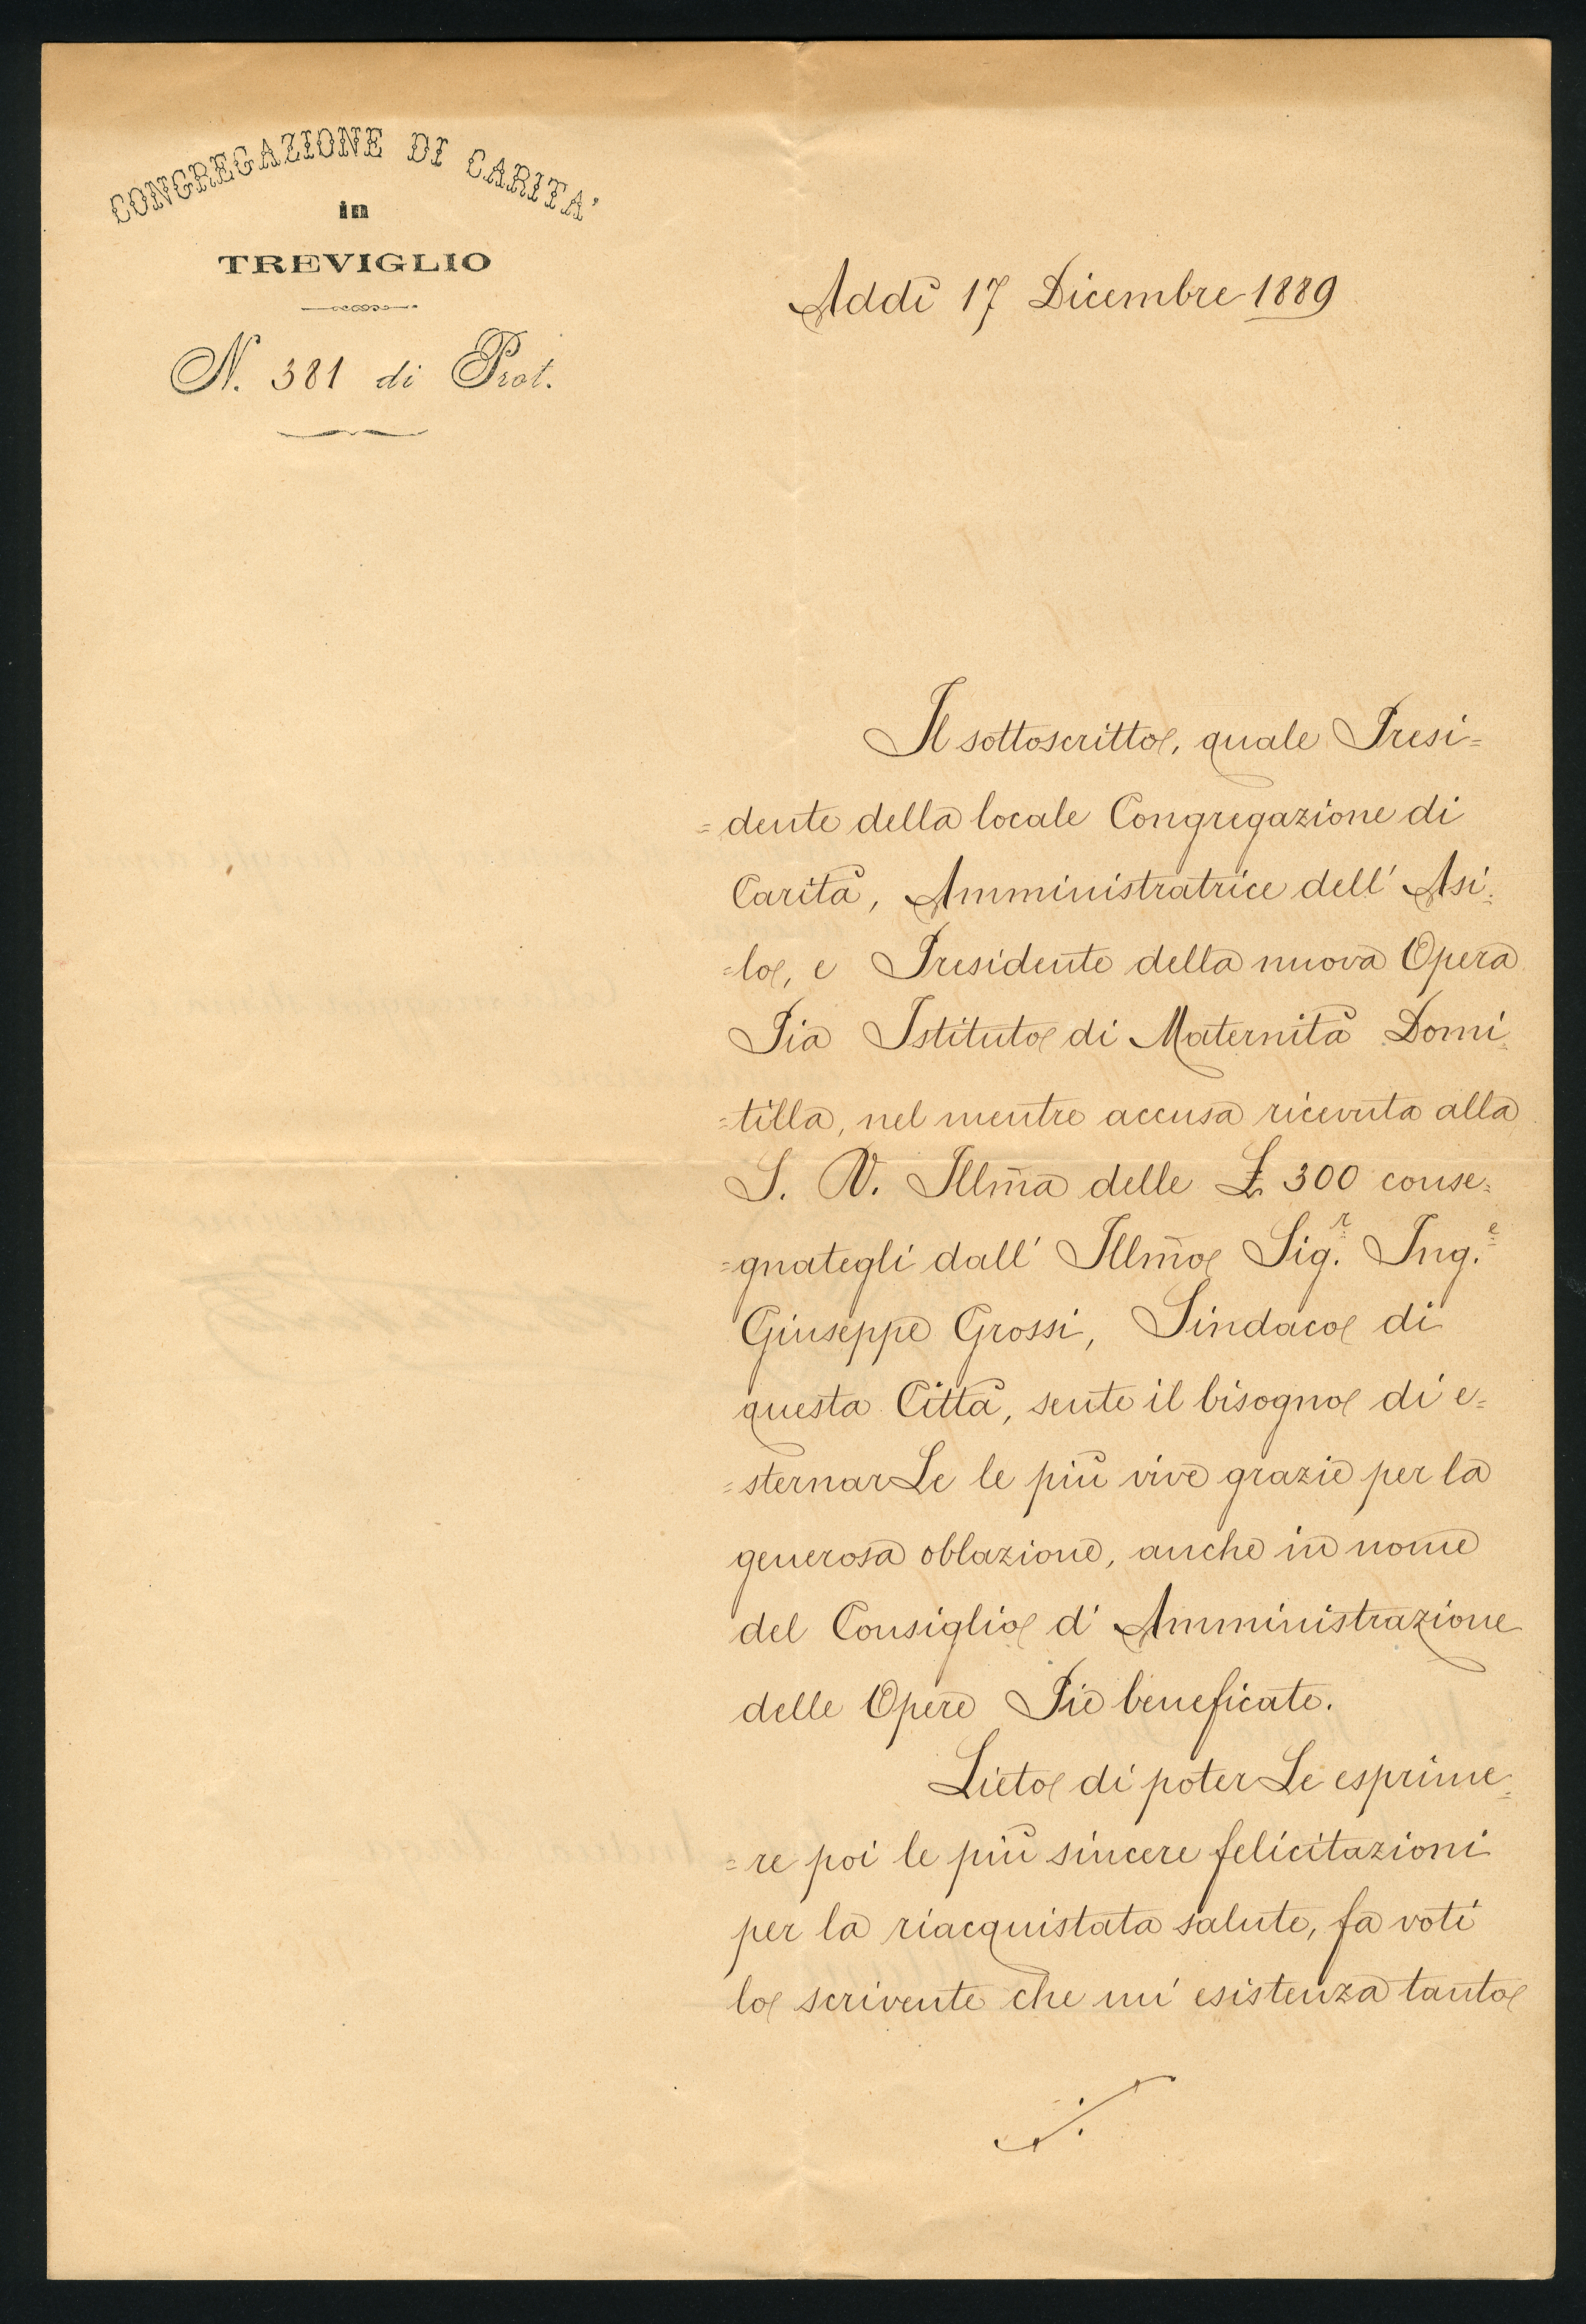 CONGREGAZIONE DI CARITA'
in
TREVIGLIO
N. 381 di Prot.
Addì 17 Dicembre 1889
Il sottoscritto, quale Presi=
=dente della locale Congregazione di
Carità, Amministratrice dell' Asi=
=lo, e Presidente della nuova Opera
Pia Istituto di Maternità Domi=
=tilla, nel mentre accusa ricevuta alla
S. V. Illm̃a delle £ 300 conse=
=gnategli dall' Illm̃o Sig.r Ing.e
Giuseppe Grossi, Sindaco di
questa Città, sente il bisogno di e=
=sternarLe le più vive grazie per la
generosa oblazione, anche in nome
del Consiglio d' Amministrazione
delle Opere Pie beneficate.
Lieto di poterLe esprime=
=re poi le più sincere felicitazioni
per la riacquistata salute, fa voti
lo scrivente che un' esistenza tanto
./.